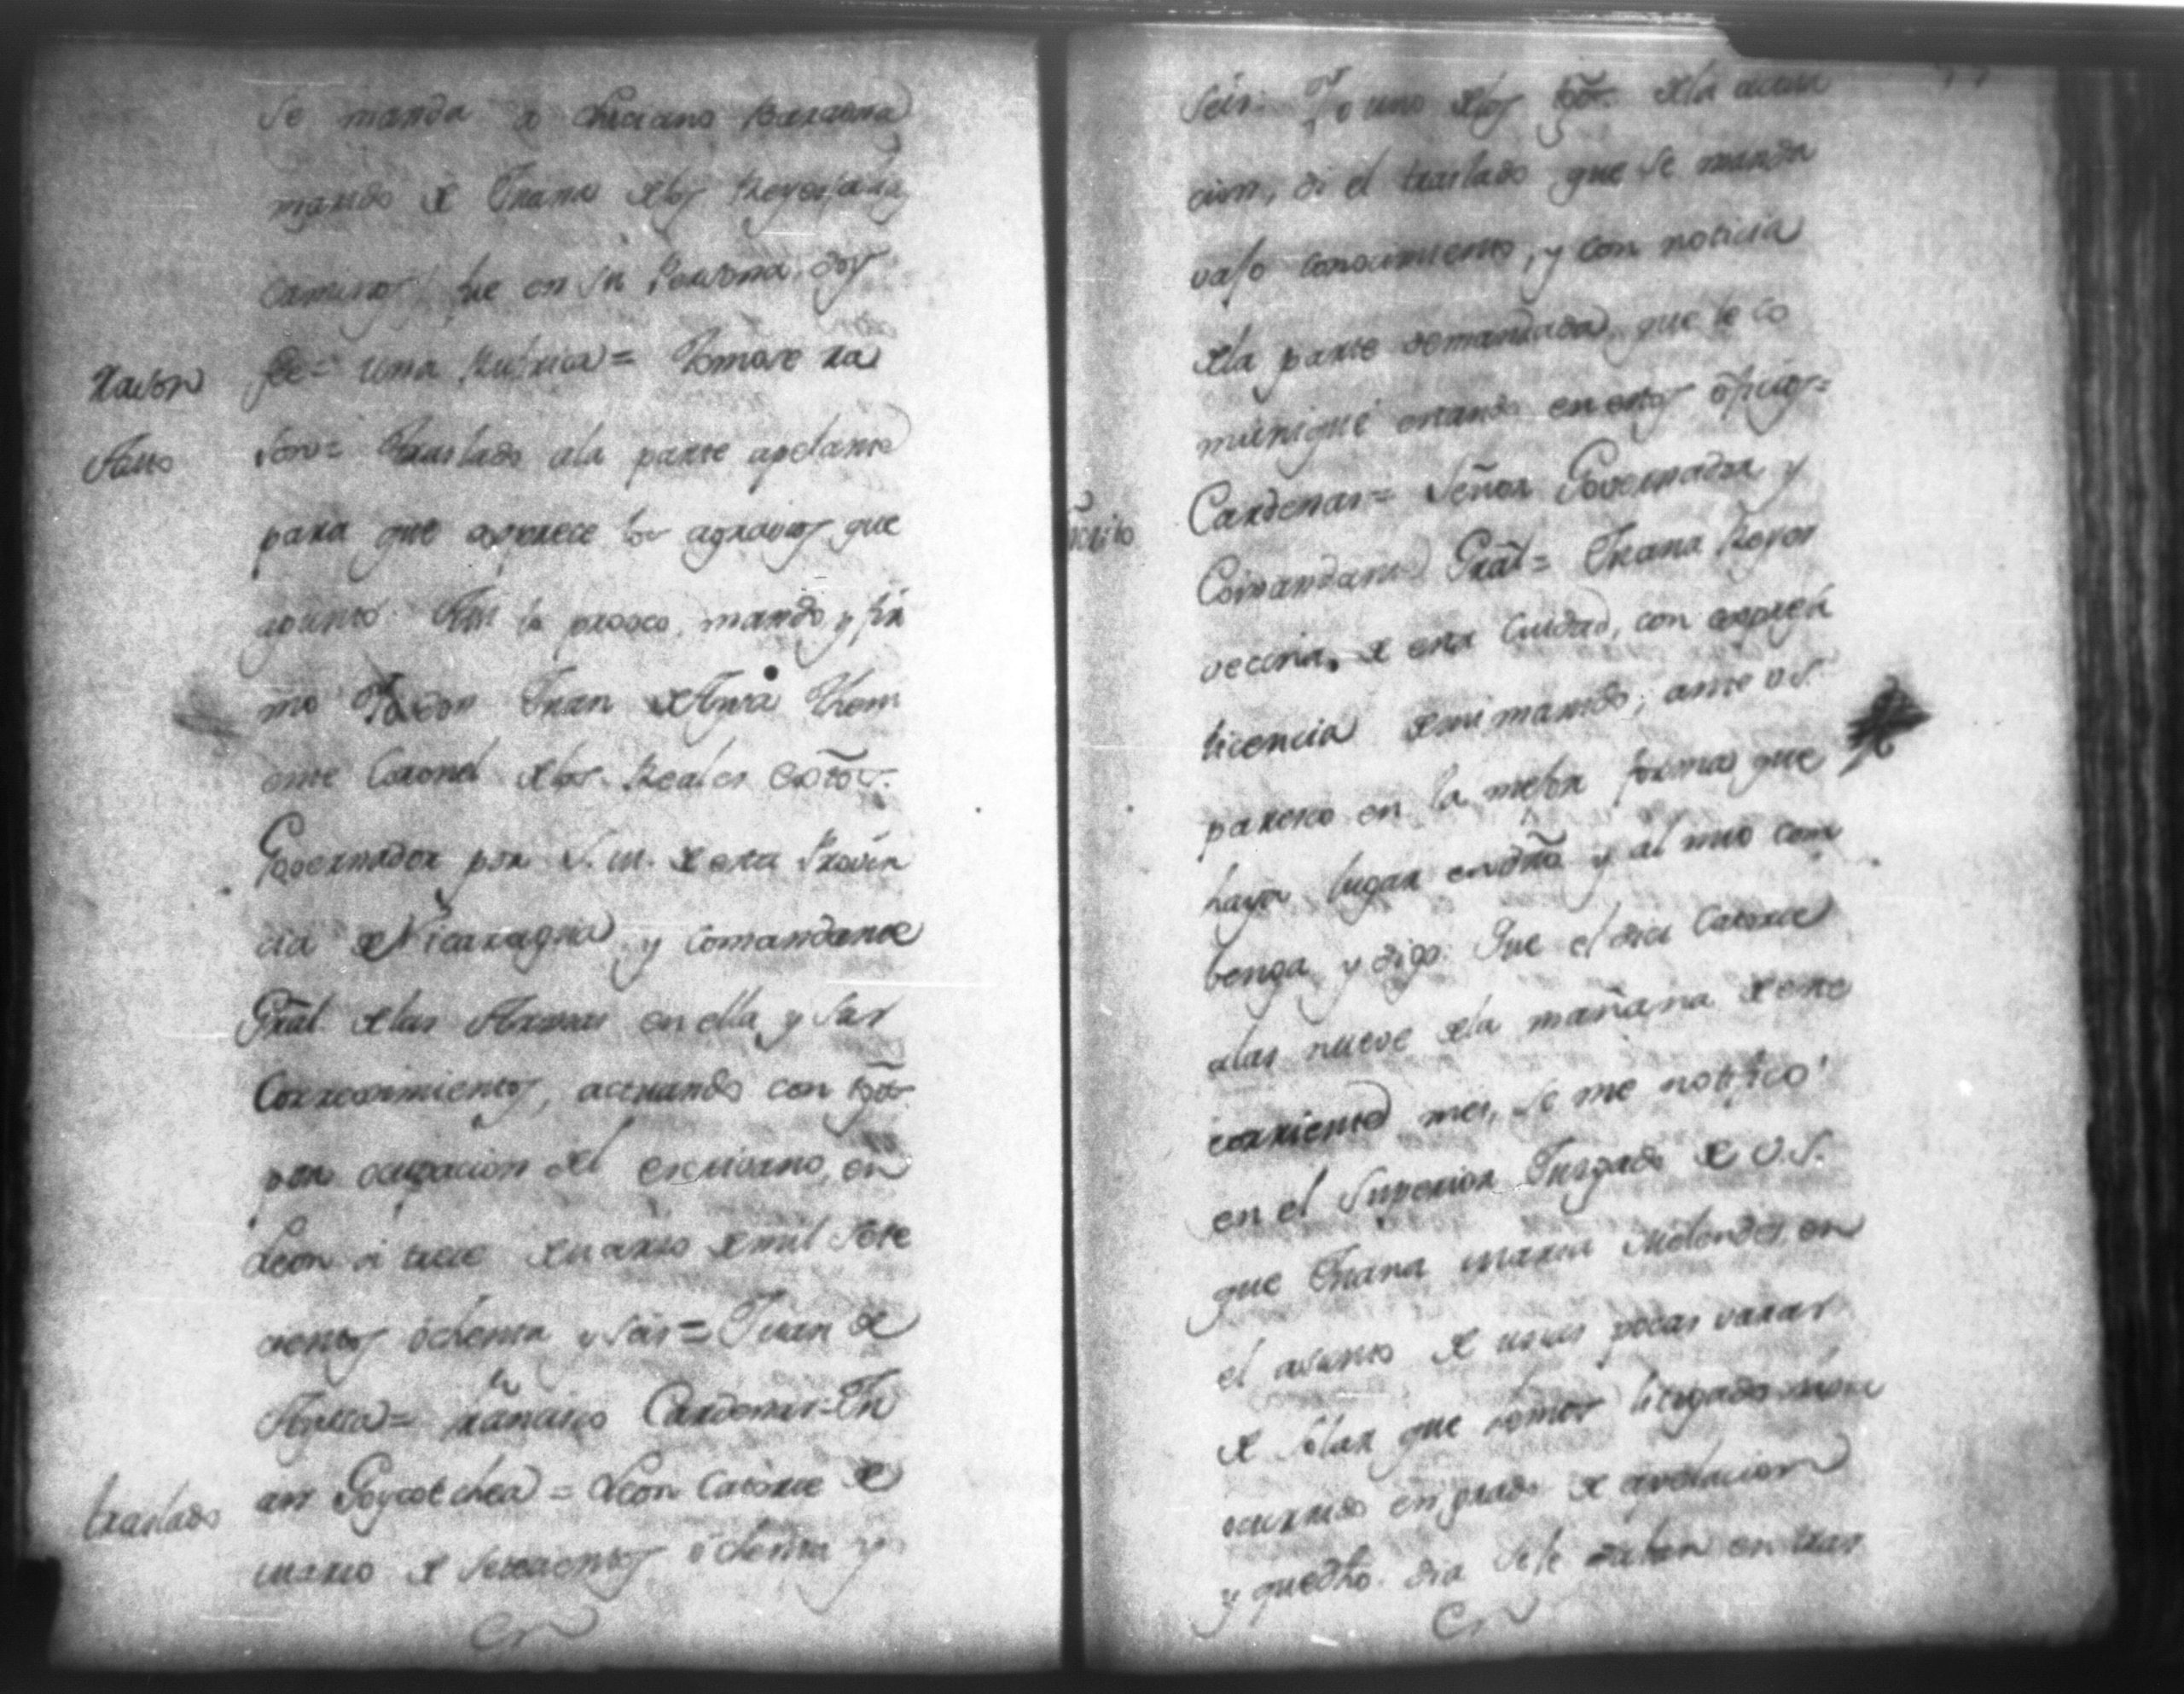 Se manda a Luciano Baraona
marido de Juana de los Reyes
Caminos, fue en su Persona, doy
Razon
fee = una Rubrica = Tomose ra
Auto
son = Traslado ala parte apelante
para que exprese los agravios que
apunto. Assi lo proveo, mando, y fir
mo Yo don Juan de Ayssa Theni
ente Coronel de los Reales extõs.
Governador por S. M. de esta Provin
cia de Nicaragua y Comandante
Grãl. de las Armas en ella y sus
Corregimientos, actuando con tgõs.
por ocupacion del escrivano, en
Leon a trece de Marzo de mil Sete
cientos ochenta y seis = Juan de
Ayssa = Francisco Cardenas = Ju
traslado
an Goycoechea = Leon Catorce de
Marzo de Setecientos ochenta y
Seis. Yo uno de los tgõs. de la actua
cion, di el traslado que se manda
vajo conocimiento, y con noticia
de la parte demandada que le co
muniqué estando en estos oficios =
Cardenas = Señor Governador y
Comandante Grãl = Juana Reyes
vecina de esta Ciudad, con expresa
licencia de mi marido; ante V.S.
paresco en la mejor forma que
haya lugar en dro y al mio com
benga y digo: Que el dia Catorce
alas nueve de la mañana de este
corriente mes, se me notificó
en el Superior Jusgado de V.S.
que Juana Maria Melendes, en
el asunto de unas pocas varas
de Solar que hemos litigado havia
ocurrido en grado de apelacion
y que dho. dia se le daban en tras